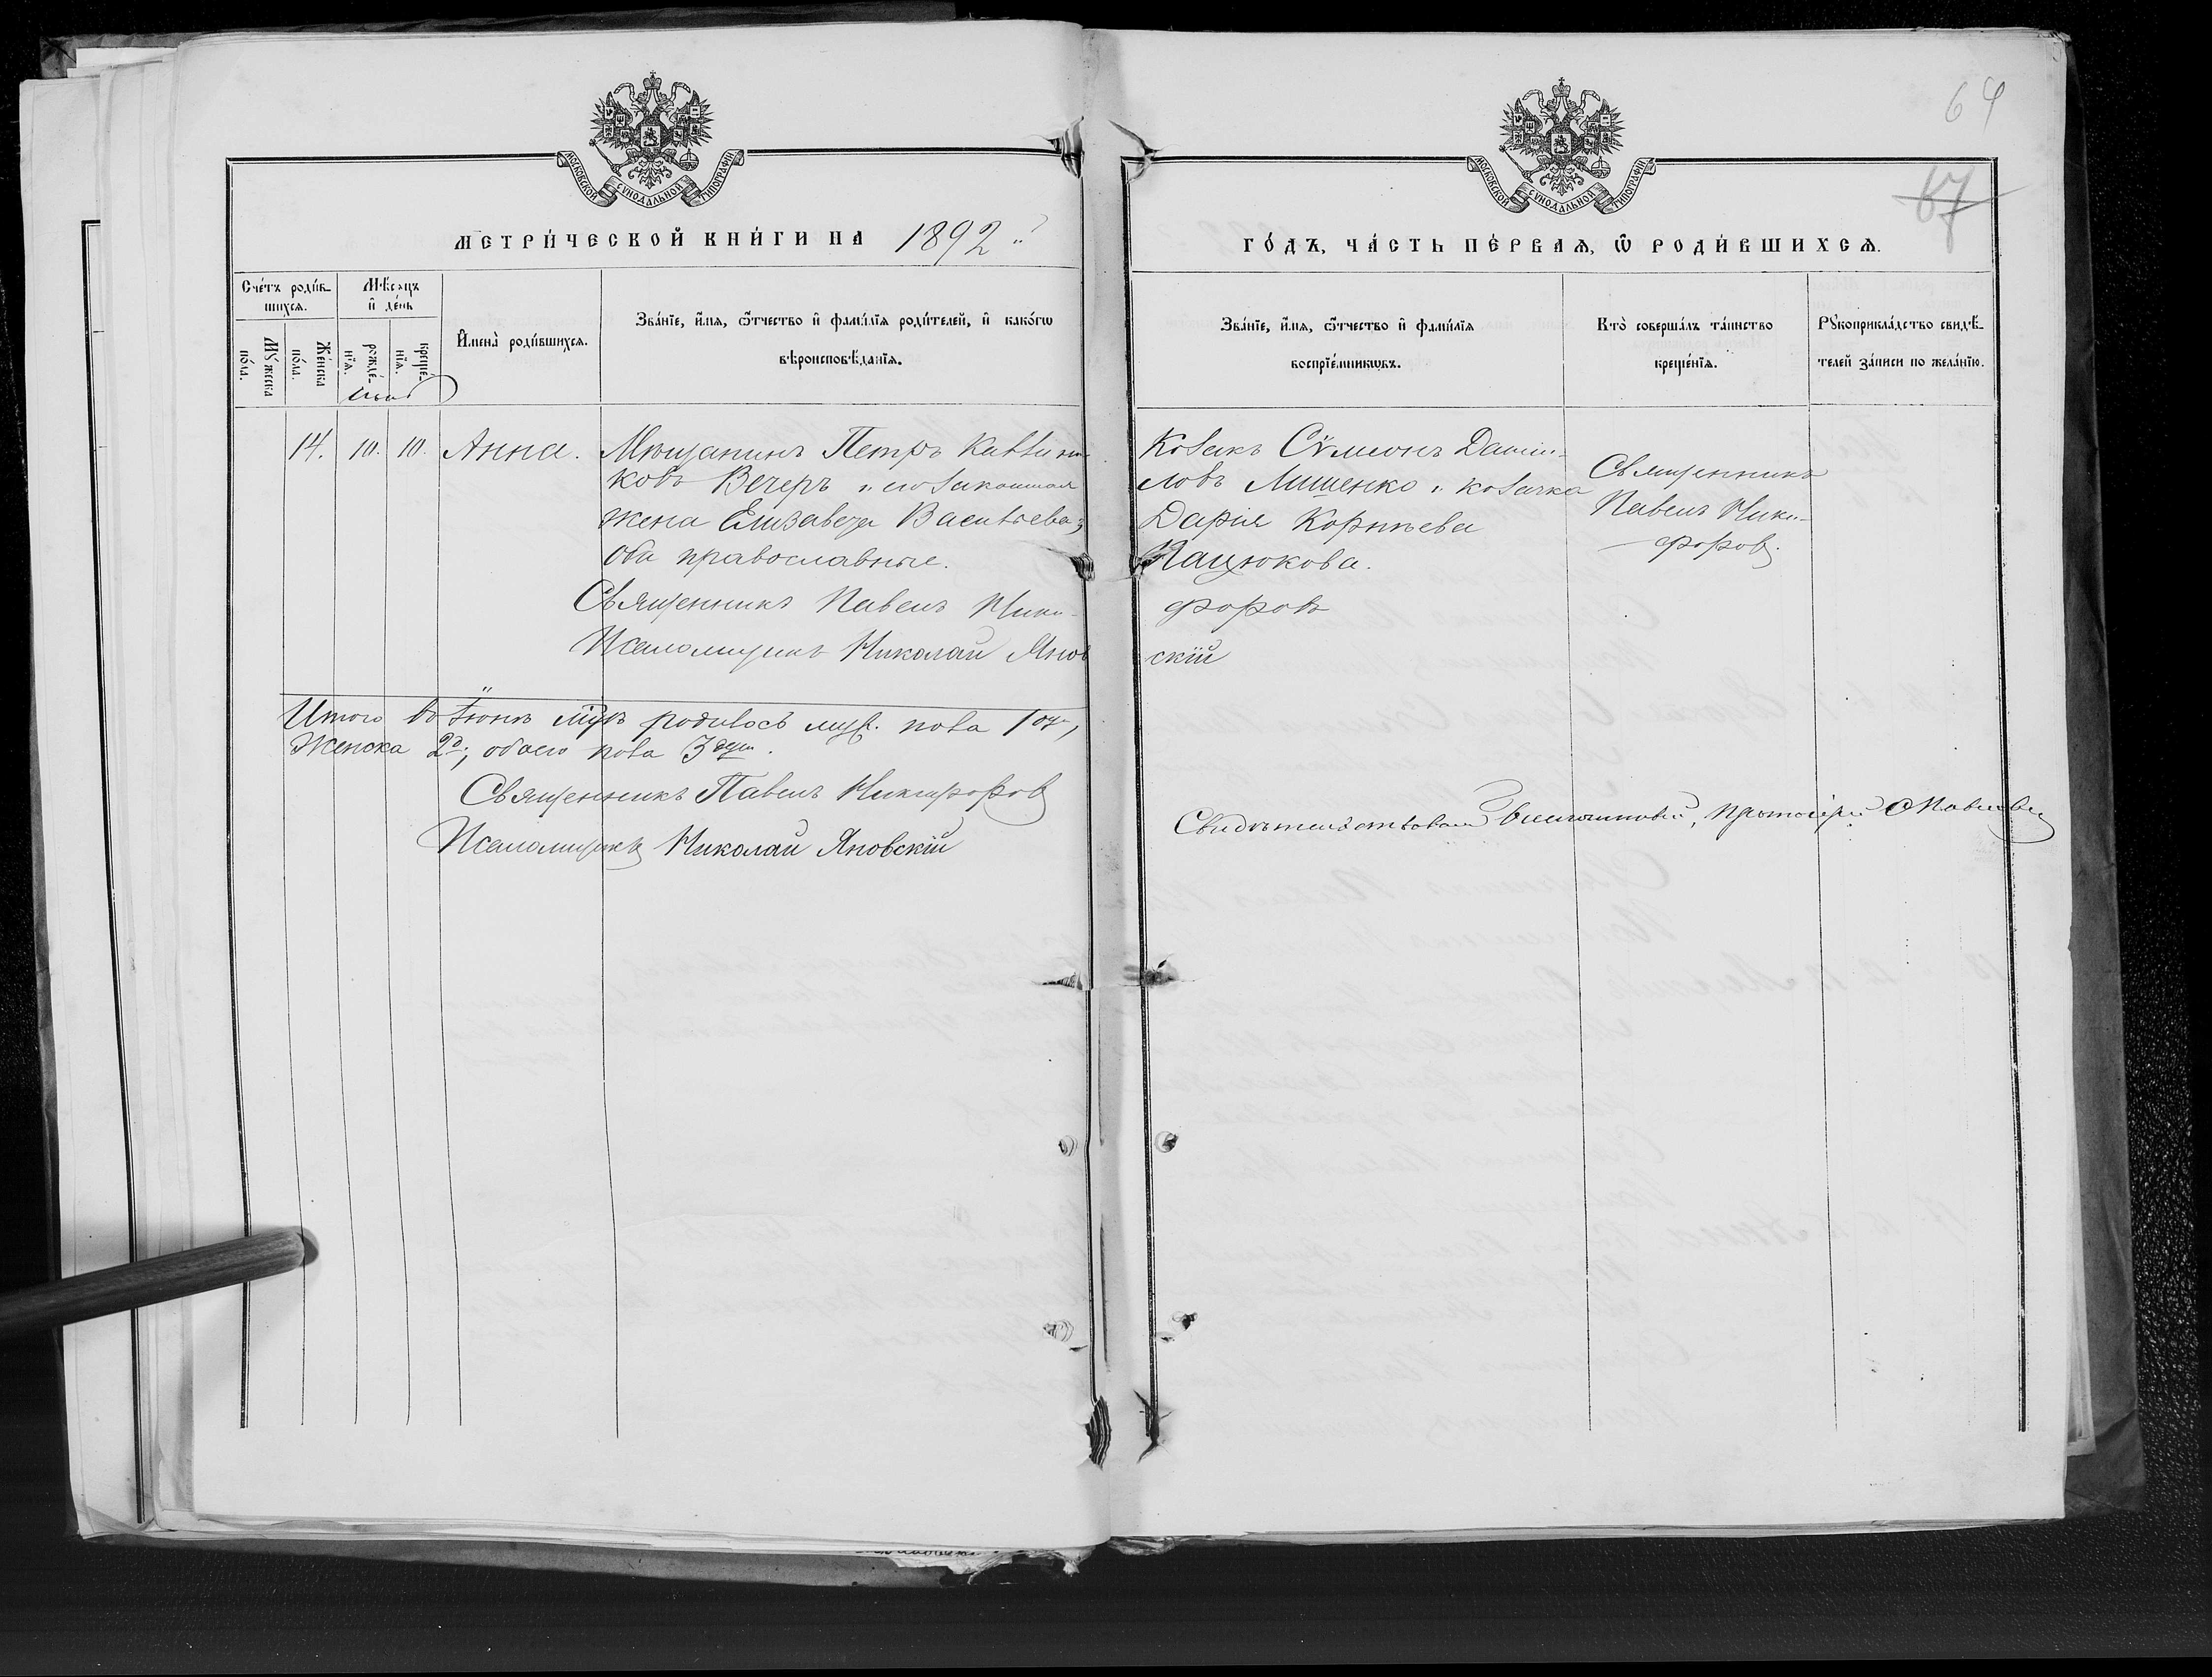 64
67
МОСКОВСКОЙ СѴНОДАЛЬНОЙ ТИПОГРАФІИ
МОСКОВСКОЙ СѴНОДАЛЬНОЙ ТИПОГРАФІИ
МЕТРИ́ЧЕСКОЙ КНИ́ГИ НА 1892
ГО́ДЪ, ЧА́СТЬ ПЕ́РВАѦ, Ѡ҆ РОДИ́ВШИХСѦ.
Сче́тъ роди́в-
шихсѧ.
Мꙋ́жеска
по́ла.
Же́нска
по́ла.
Мѣ́сѧцъ
и҆ де́нь
рожде́-
нїѧ.
креще́-
нїѧ.
И҆мена̀ роди́вшихсѧ.
Зва́нїе, и҆́мѧ, ѻ҆́тчество и҆ фамі́лїѧ роди́телей, и҆ како́гѡ
вѣроисповѣ́данїѧ.
Зва́нїе, и҆́мѧ, ѻ҆́тчество и҆ фамі́лїѧ
воспрїе́мникѡвъ.
Кто̀ соверша́лъ та́инство
креще́нїѧ.
Рꙋкоприкла́дство свидѣ́-
телей за́писи по жела́нїю.
Іюнь
14. 10. 10. Анна.
Мѣщанинъ Петръ
ковъ Вечеръ и его законная
жена Елизавета Васильева;
оба православные.
Священникъ Павелъ Ники-
Псаломщикъ Николай Янов
Козакъ Сѵмеонъ Дани-
ловъ Лишенко и козачка
Дарія Корнѣева
Пацюкова.
форовъ
скій
Священникъ
Павелъ Ники-
форовъ.
Итого въ Іюнѣ мцѣ родилось муж. пола 1
Женска 2, обоего пола 3
Священникъ Павелъ Никифоровъ
Псаломщикъ Николай Яновскій
Свидѣтельствовалъ Благочинный, Протоіерей